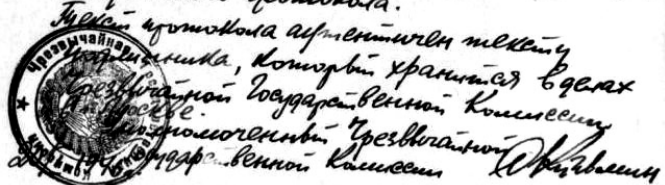 протокола.
Текст протокола аутентичен тексту
подлинника, который хранится в делах
Чрезвычайной Государственной Комиссии
в г. Москве.
Уполномоченный Чрезвычайной
Государственной Комиссии
Чрезвычайная